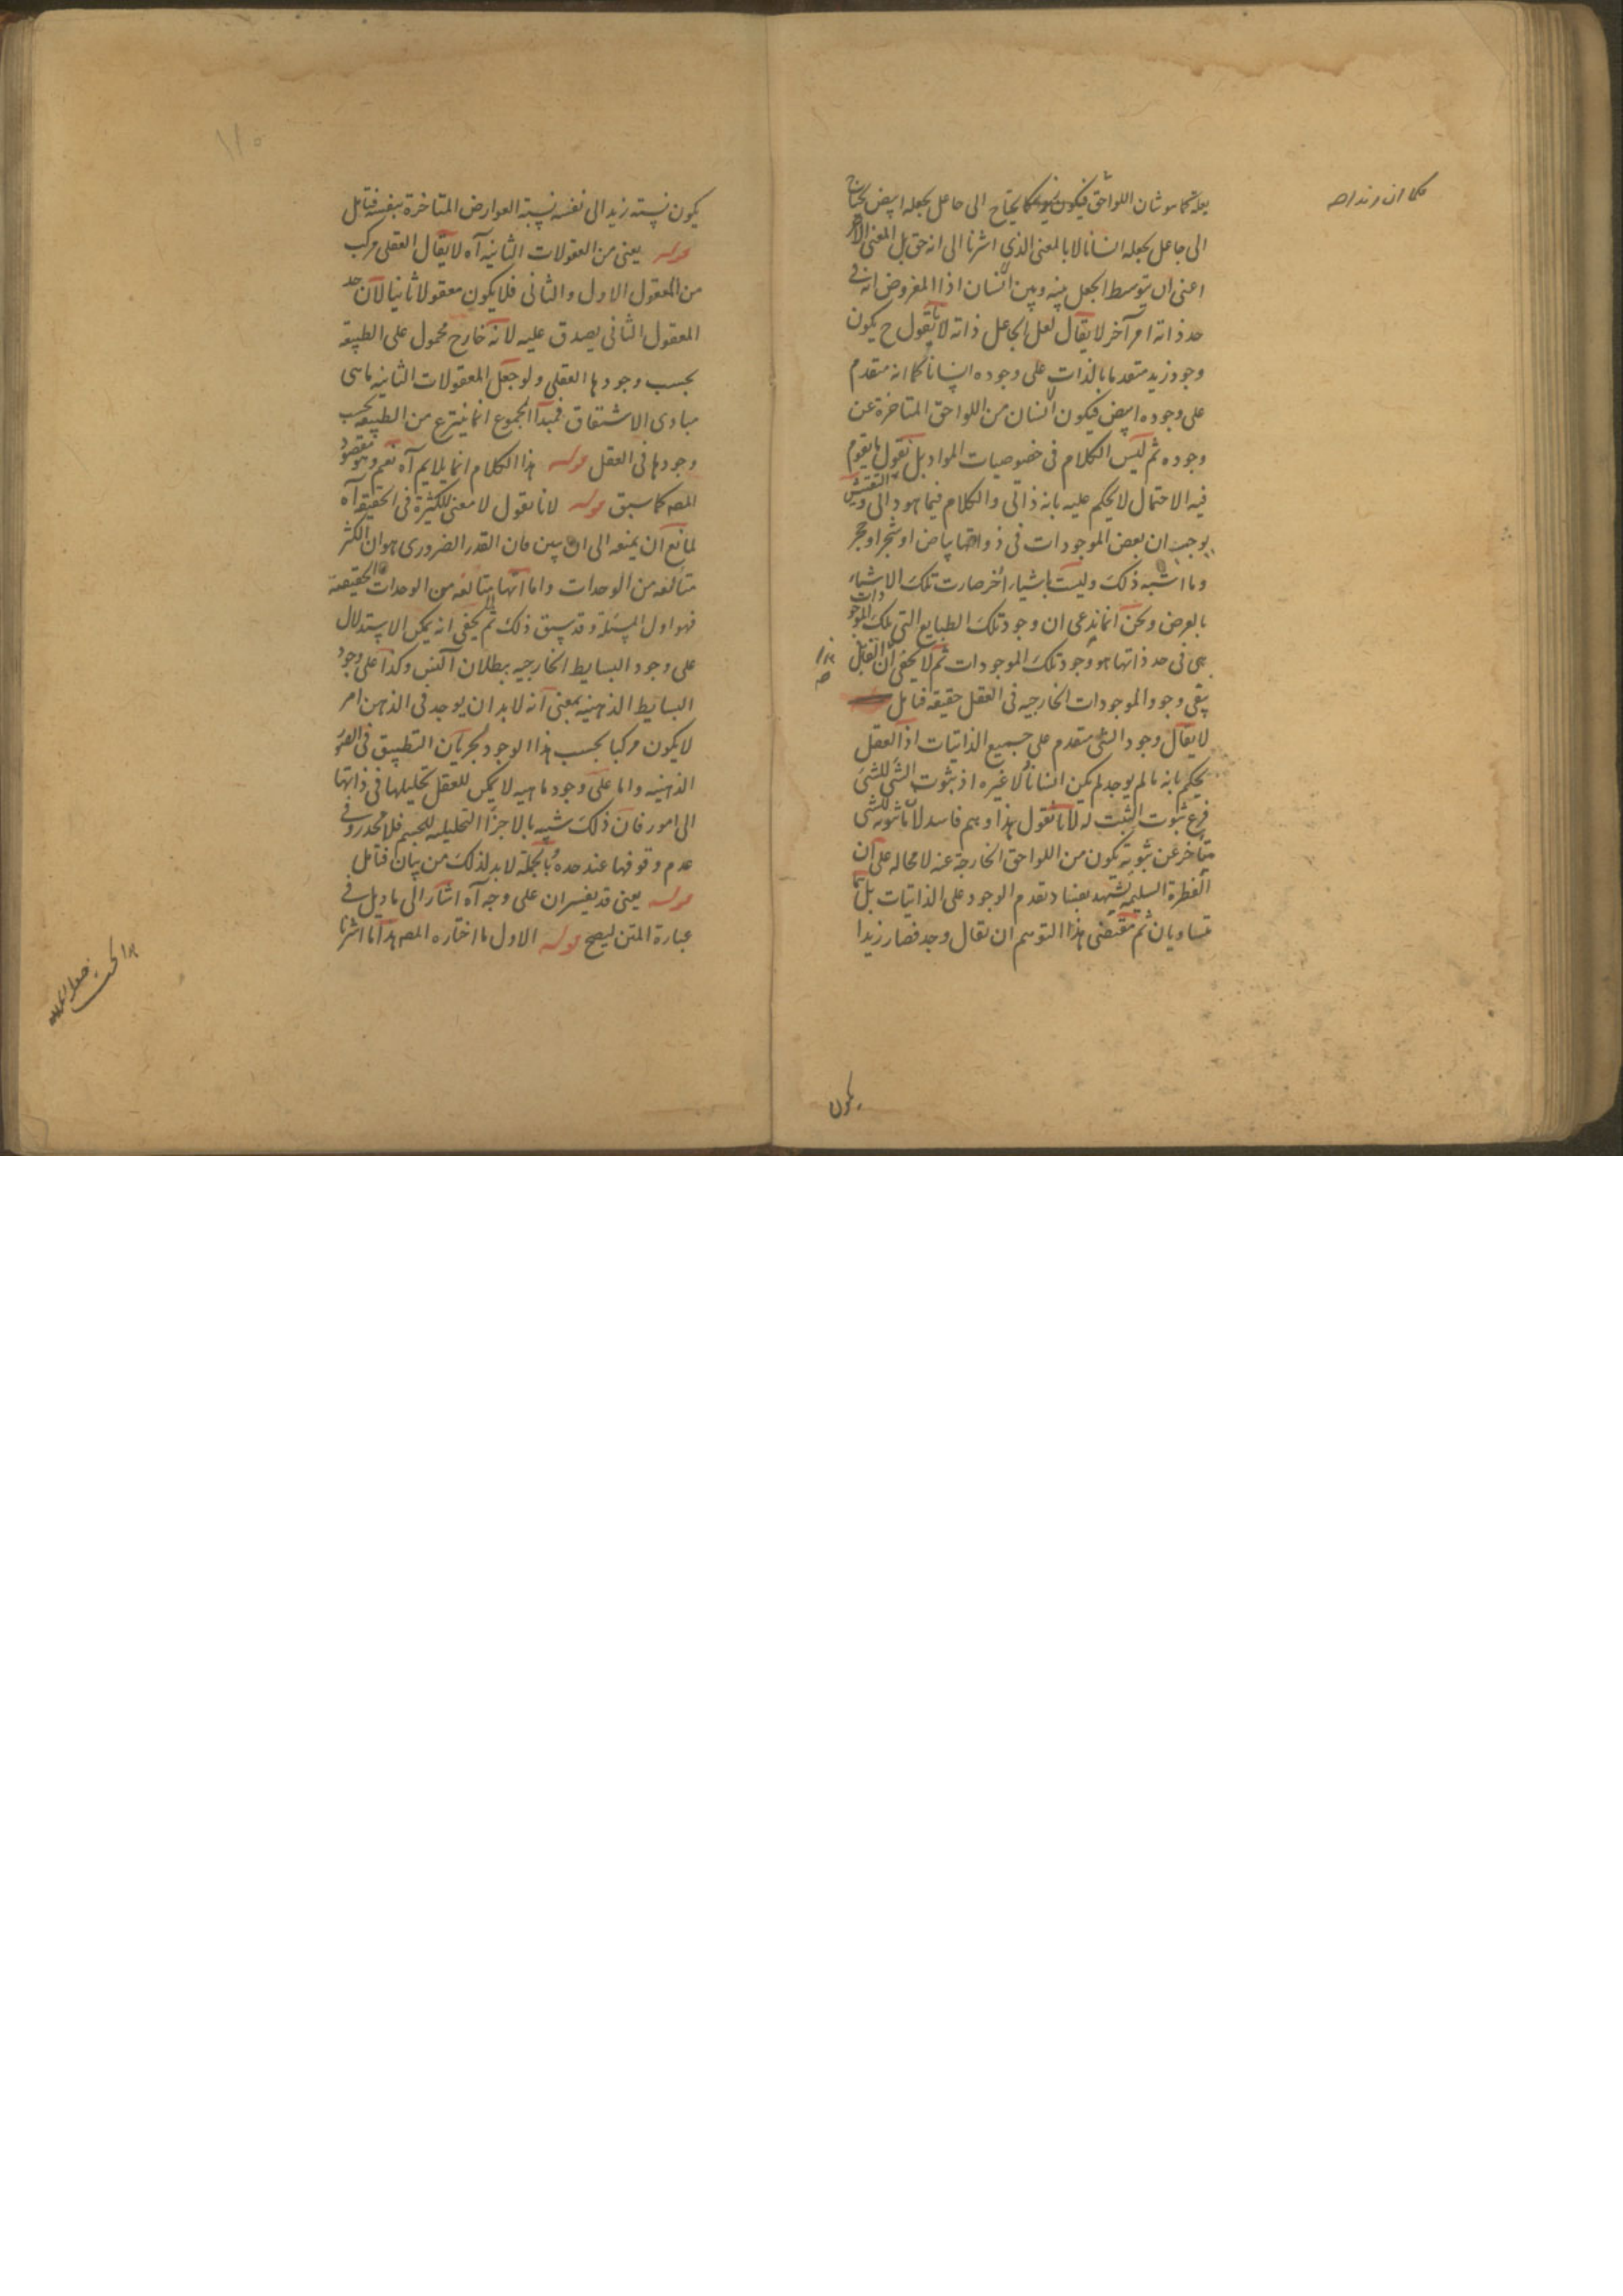 بعلة كما هو شان اللواحق فيكون كما يحتاج الى جاعل يجعله ابيض يحتاج
الى جاعل يجعله انسانا لا بالمعنى الذي اشرنا الى انه حق بل المعنى الاخر
اعنى ان يتوسط الجعل بينه وبين انسان اذ المفروض انه في
حد ذاته امر آخر لا يقال لعل الجاعل ذاته لانا نقول ح يكون
وجود زيد متقدما بالذات على وجوده انسانا كما انه متقدم
على وجوده ابيض فيكون انسان من اللواحق المتاخرة عن
وجوده ثم ليس الكلام في خصوصيات المواد بل نقول ما يقوم
فيه الاحتمال لا يحكم عليه بانه ذاتى والكلام فيما هو ذاتى والتفتيش
يوجب ان بعض الموجودات في ذواتها بياض او شجر او حجر
وما اشبه ذلك وليست باشياء أخر صارت تلك الاشياء
بالعرض ونحن انما ندعى ان وجود تلك الطبايع التى تلك الموجودات
هى في حد ذاتها هو وجود تلك الموجودات ثم لا يخفى ان القابل
بقى وجود الموجودات الخارجيه في العقل حقيقة قابل
لا يقال وجود الشئ متقدم على جميع الذاتيات اذ العقل
يحكم بانه ما لم يوجد لم يكن انسانا ولا غيره اذ ثبوت الشئ للشئ
فرع ثبوت المثبت له لانا نقول هذا وهم فاسد لان ثبوته للشئ
متاخر عن ثبوته يكون من اللواحق الخارجة عنه لا محاله على ان
الفطرة السليمه تشهد بفساد تقدم الوجود على الذاتيات بل هما
متساويان ثم مقتضى هذا التوهم ان يقال وجد فصار زيدا
يكون
يكون نسبته زيد الى نفسه نسبة العوارض المتاخرة بنفسه فتامل
قوله يعنى من العقولات الثانيه آه لا يقال العقلى مركب
من المعقول الاول والثانى فلا يكون معقولا ثانيا لان حد
المعقول الثانى يصدق عليه لانه خارج محمول على الطبيعة
بحسب وجودها العقلى ولو جعل المعقولات الثانيه ما هى
مبادى الاشتقاق فمبدأ المجموع انما ينتزع من الطبيعه بحسب
وجودها فى العقل قوله هذا الكلام انما يلايم آه نعم وهو مقصود
المصه كما سبق قوله لانا نقول لا معنى للكثيرة في الحقيقة آه
لمانع ان يمنعه الى ان يبين فان القدر الضرورى هو ان الكثر
متألفه من الوحدات واما انها متألفه من الوحدات الحقيقة
فهو اول المسئلة وقد سبق ذلك ثم لا يخفى انه يمكن الاستدلال
على وجود البسايط الخارجيه ببطلان التس وكذا على وجود
البسايط الذهنيه بمعنى انه لا بد ان يوجد فى الذهن امر
لا يكون مركبا بحسب هذا الوجود لجريان التطبيق فى الصور
الذهنيه واما على وجود ماهيه لا يمكن للعقل تحليلها فى ذاتها
الى امور فان ذلك شبيه بالاجزاء التحليليه للجسم فلا محذور فى
عدم وقوفها عند حده وبالجملة لا بد لذلك من بيان فتامل
قوله يعنى قد يفسران على وجه آه اشار الى تاويل فى
عبارة المتن ليصح قوله الاول ما اختاره المصه هذا ما اشرنا